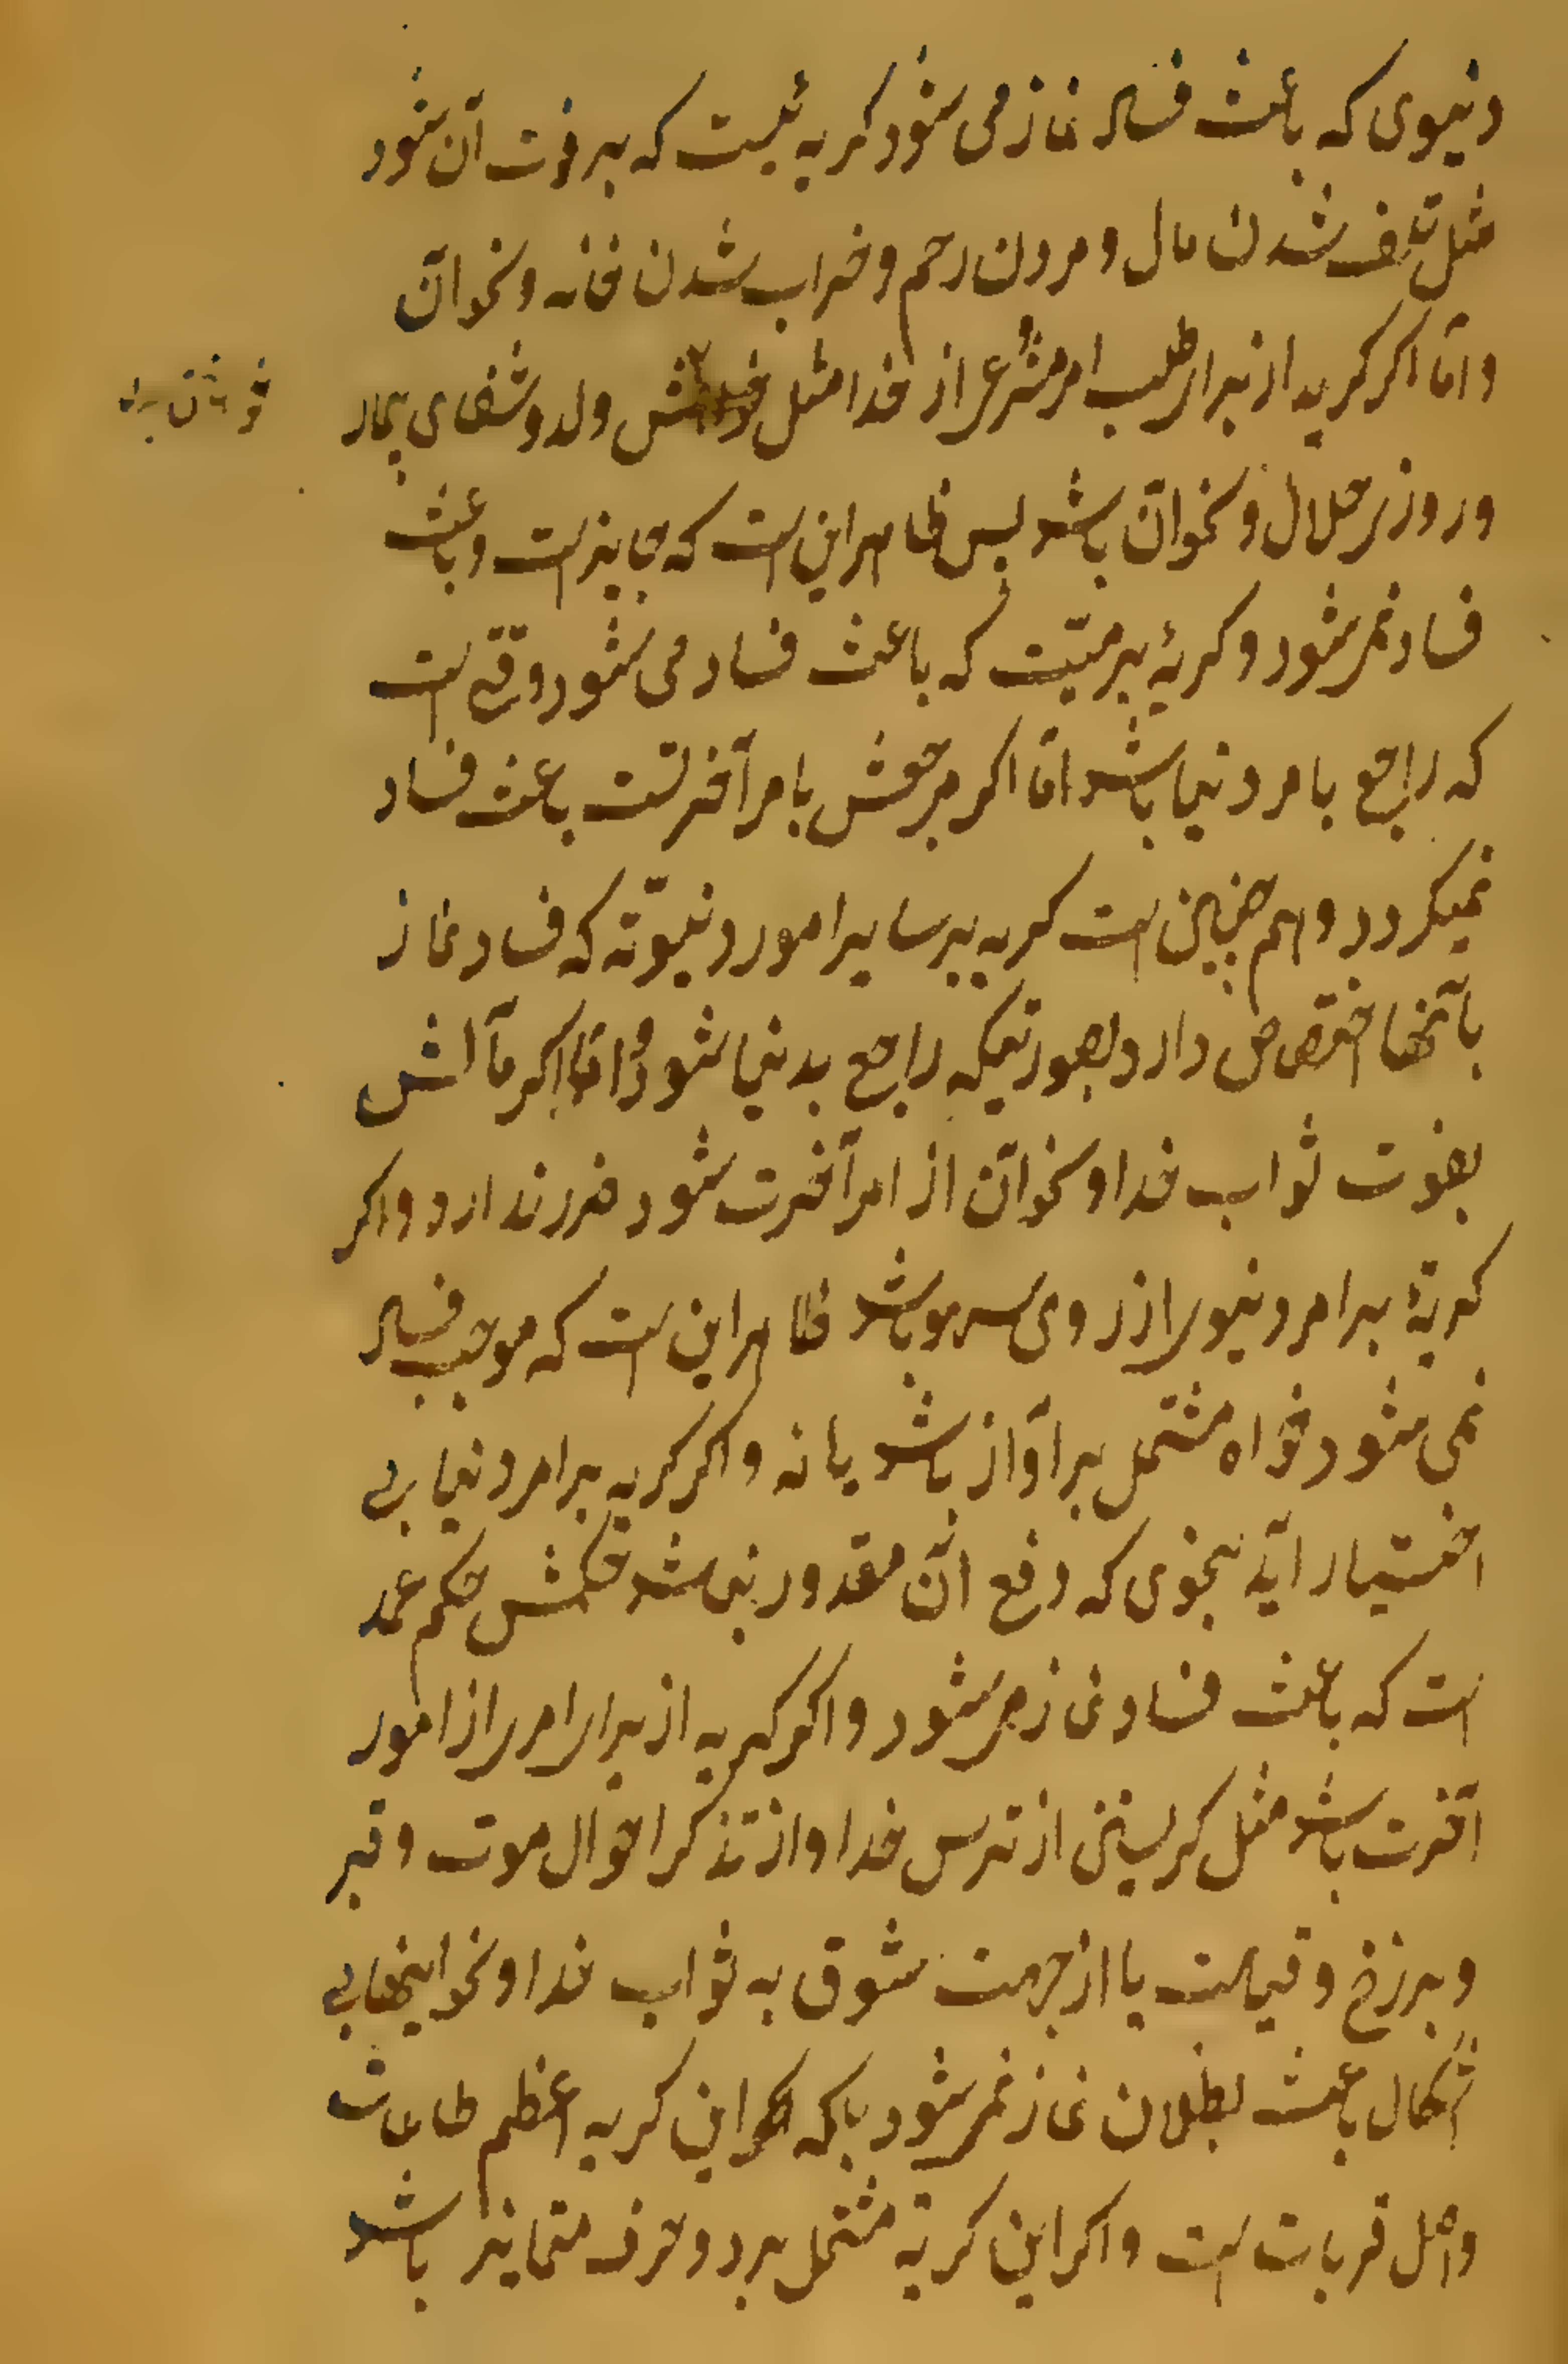 دنیوی که باعث فساد نماز می شود کریه ئیست که بر فوت آن شود
مثل تلف شدن مال و مردن رحم و خراب شدن خانه و نحو آن
و امّا اکر کریه از برای طلب امر مشرعی از خدا مثل خواهش ولد و شفای بیمار
و روزی حلال و نحو آن باشد پس ظاهر این است که جایز است و باعث
فساد نمی شود و کریهٔ بر میّت که باعث فساد می شود وقتی است
که راجع بامر دنیا باشد امّا اکر مرجعش بامر آخرتست باعث فساد
نمیکردد و همچنین است کریه بر سایر امور دنیویّه که فساد نماز
بآنها اختصاص دارد بصورتیکه راجع بدنیا شود و امّا اکر مآلش
بفوت ثواب خدا و نحو آن از امر آخرت شود ضرر ندارد و اکر
کریهٔ بر امر دنیوی از روی سهو باشد ظاهر این است که موجب فساد
نمی شود خواه مشتمل بر آواز باشد یا نه و اکر کریه بر امر دنیا بی
اختیار آید بنحوی که دفع آن مقدور نباشد حکمش حکم عمد
است که باعث فساد نماز می شود و اکر کریه از برای امری از امور
آخرت باشد مثل کریستن از ترس خدا و از تذکر احوال موت و قبر
و برزخ و قیامت یا از جهت شوق به ثواب خدا و نحو اینها بی
اشکال باعث بطلان نماز نمی شود بلکه این کریه اعظم طاعات
و اصل قربات است و اکر این کریه مشتمل بر دو حرف متمایز باشد